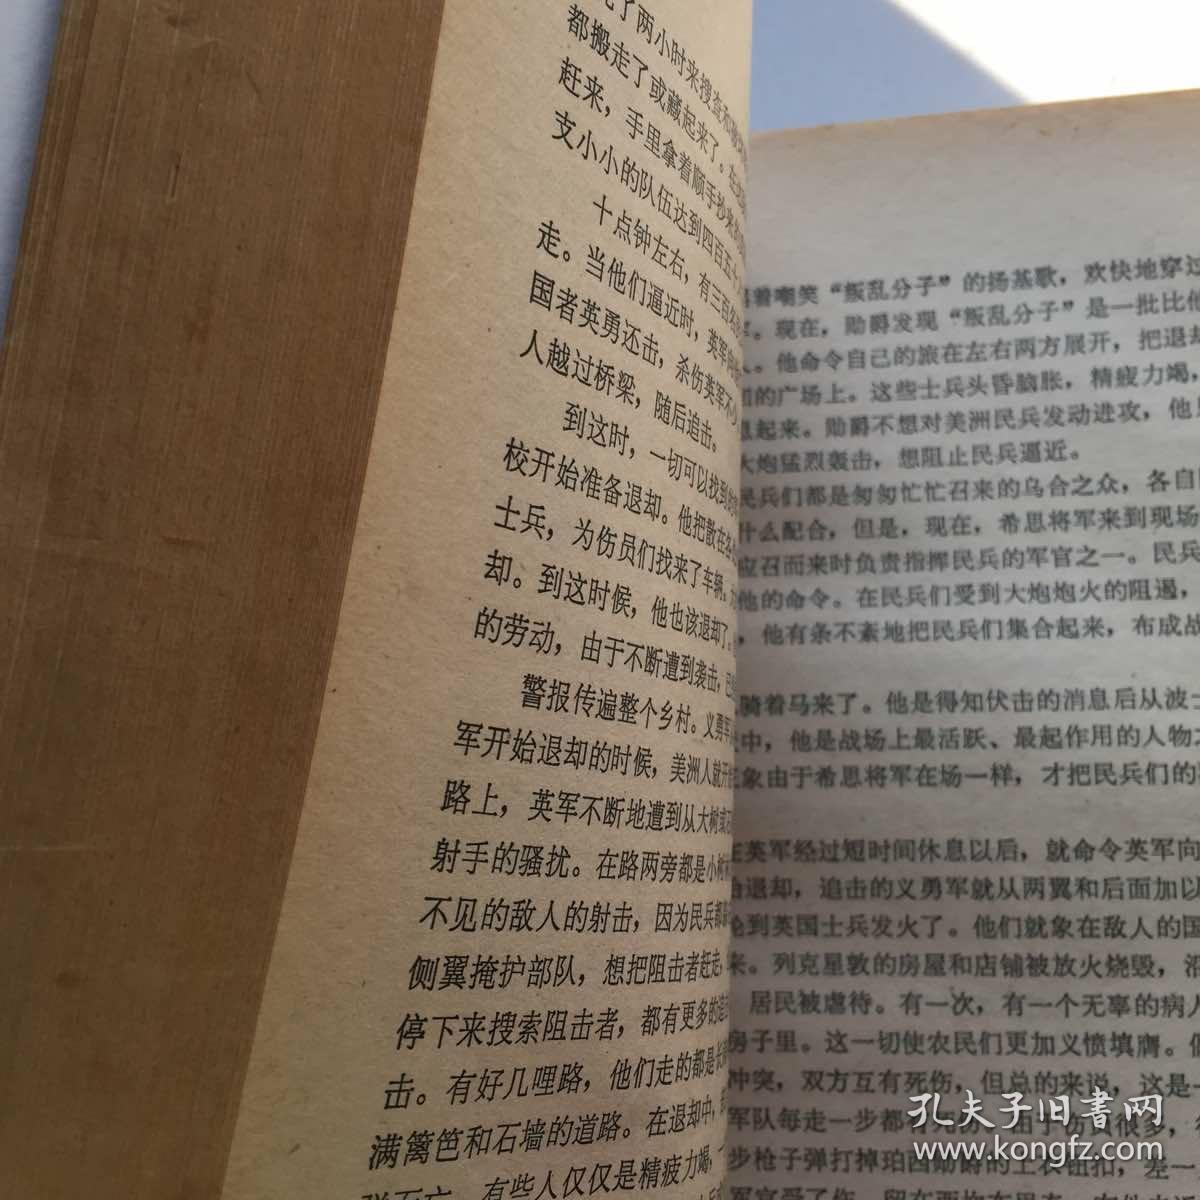 了两小时来搜查和
都搬走了或藏起来了。在
赶来，手里拿着顺手抄来的
支小小的队伍达到四百五十
十点钟左右，有三百名
走。当他们逼近时，英军向
国者英勇还击，杀伤英军不少
人越过桥梁，随后追击。
到这时，一切可以找到的
校开始准备退却。他把散在
士兵，为伤员们找来了车辆，
却。到这时候，他也该退却了。
的劳动，由于不断遭到袭击，已
警报传遍整个乡村。义勇军
军开始退却的时候，美洲人就开
路上，英军不断地遭到从大树或
射手的骚扰。在路两旁都是小树
不见的敌人的射击，因为民兵都
侧翼掩护部队，想把阻击者赶走，
停下来搜索阻击者，都有更多的
击。有好几哩路，他们走的都是长
满篱笆和石墙的道路。在退却中，
有些人仅仅是精疲力竭，一
着嘲笑“叛乱分子”的扬基歌，欢快地穿过
。现在，勋爵发现“叛乱分子”是一批比他
人。他命令自己的旅在左右两方展开，把退却
的广场上。这些士兵头昏脑胀，精疲力竭，
息起来。勋爵不想对美洲民兵发动进攻，他
大炮猛烈轰击，想阻止民兵逼近。
民兵们都是匆匆忙忙召来的乌合之众，各自
什么配合，但是，现在，希思将军来到现场
应召而来时负责指挥民兵的军官之一。民兵
他的命令。在民兵们受到大炮炮火的阻遏，
，他有条不紊地把民兵们集合起来，布成战
骑着马来了。他是得知伏击的消息后从波士
中，他是战场上最活跃、最起作用的人物
象由于希思将军在场一样，才把民兵们的
在英军经过短时间休息以后，就命令英军向
退却，追击的义勇军就从两翼和后面加以
轮到英国士兵发火了。他们就象在敌人的国
来。列克星敦的房屋和店铺被放火烧毁，
居民被虐待。有一次，有一个无辜的病人
房子里。这一切使农民们更加义愤填膺。
冲突，双方互有死伤，但总的来说，这是
军队每走一步都有死伤。由于伤员很多，
步枪子弹打掉珀西勋爵的上衣钮扣，差一
军官受了伤，留在
孔夫子旧书网
www.kongfz.com